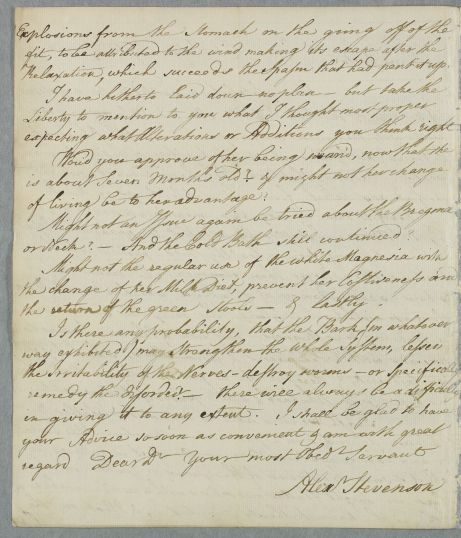 Explosions from the Stomach on the going off of the
fit, to be attributed to the wind making its escape after the
Relaxation, which succeeds the Spasm that had pent it up.
I have hetherto laid down no plan — but take the
Liberty to mention to you what I thought most proper
expecting what Alterations or Additions you think right
Wou'd you approve of her being weand, now that she
is about Seven Months old? & might not her change
of living be to her advantage?
Might not an Issue again be tried about the Bregma
or Neck? — And the Cold Bath still continued?
Might not the regular use of the White Magnesia with
the change of her Milk Diet, prevent her Costiveness and
the return of the green Stools — & lastly
Is there any probability, that the Bark (in whatever
way exhibited) may Strengthen the whole System, lessen
the Irritability of the Nerves - destroy worms — or Specifically
remedy the disorder? — there will always be a difficulty
in giving it to any extent. I shall be glad to have
your Advice so soon as convenient & am with great
regard Dear Dr Your most Obedt Servant
Alexr Stevenson